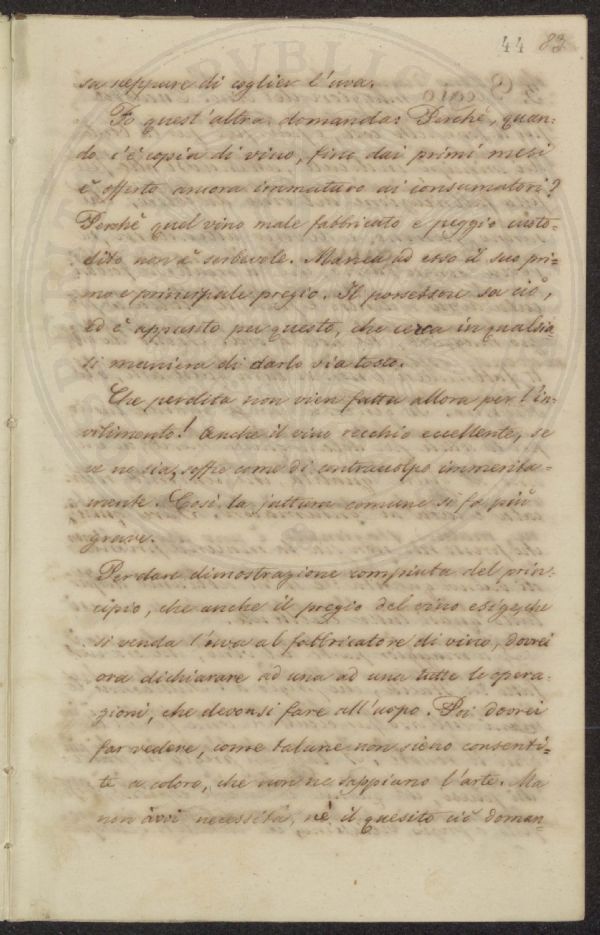 44 83
sa neppure di coglier l'uva.
Fo quest'altra domanda: Perchè, quan=
do c'è copia di vino, fino dai primi mesi
è offerto ancora immaturo ai consumatori?
Perchè quel vino male fabbricato e peggio custo=
dito non è serbevole. Manca ad esso il suo pri=
mo e principale pregio. Il possessore sa ciò,
ed è appunto per questo, che cerca in qualsia=
si maniera di darlo via tosto.
Che perdita non vien fatta allora per l'in=
vilimento! Anche il vino vecchio eccellente, se
ve ne sia, soffre come di contraccolpo immerita=
mente. Così la jattura comune si fa più
grave.
Per dare dimostrazione compiuta del prin=
cipio, che anche il pregio del vino esige, che
si venda l'uva al fabbricatore di vino, dovrei
ora dichiarare ad una ad una tutte le opera=
zioni, che devonsi fare all'uopo. Poi dovrei
far vedere, come talune non sieno consenti=
te a coloro, che non ne sappiano l'arte. Ma
non àvvi necessità, nè il quesito ciò doman=